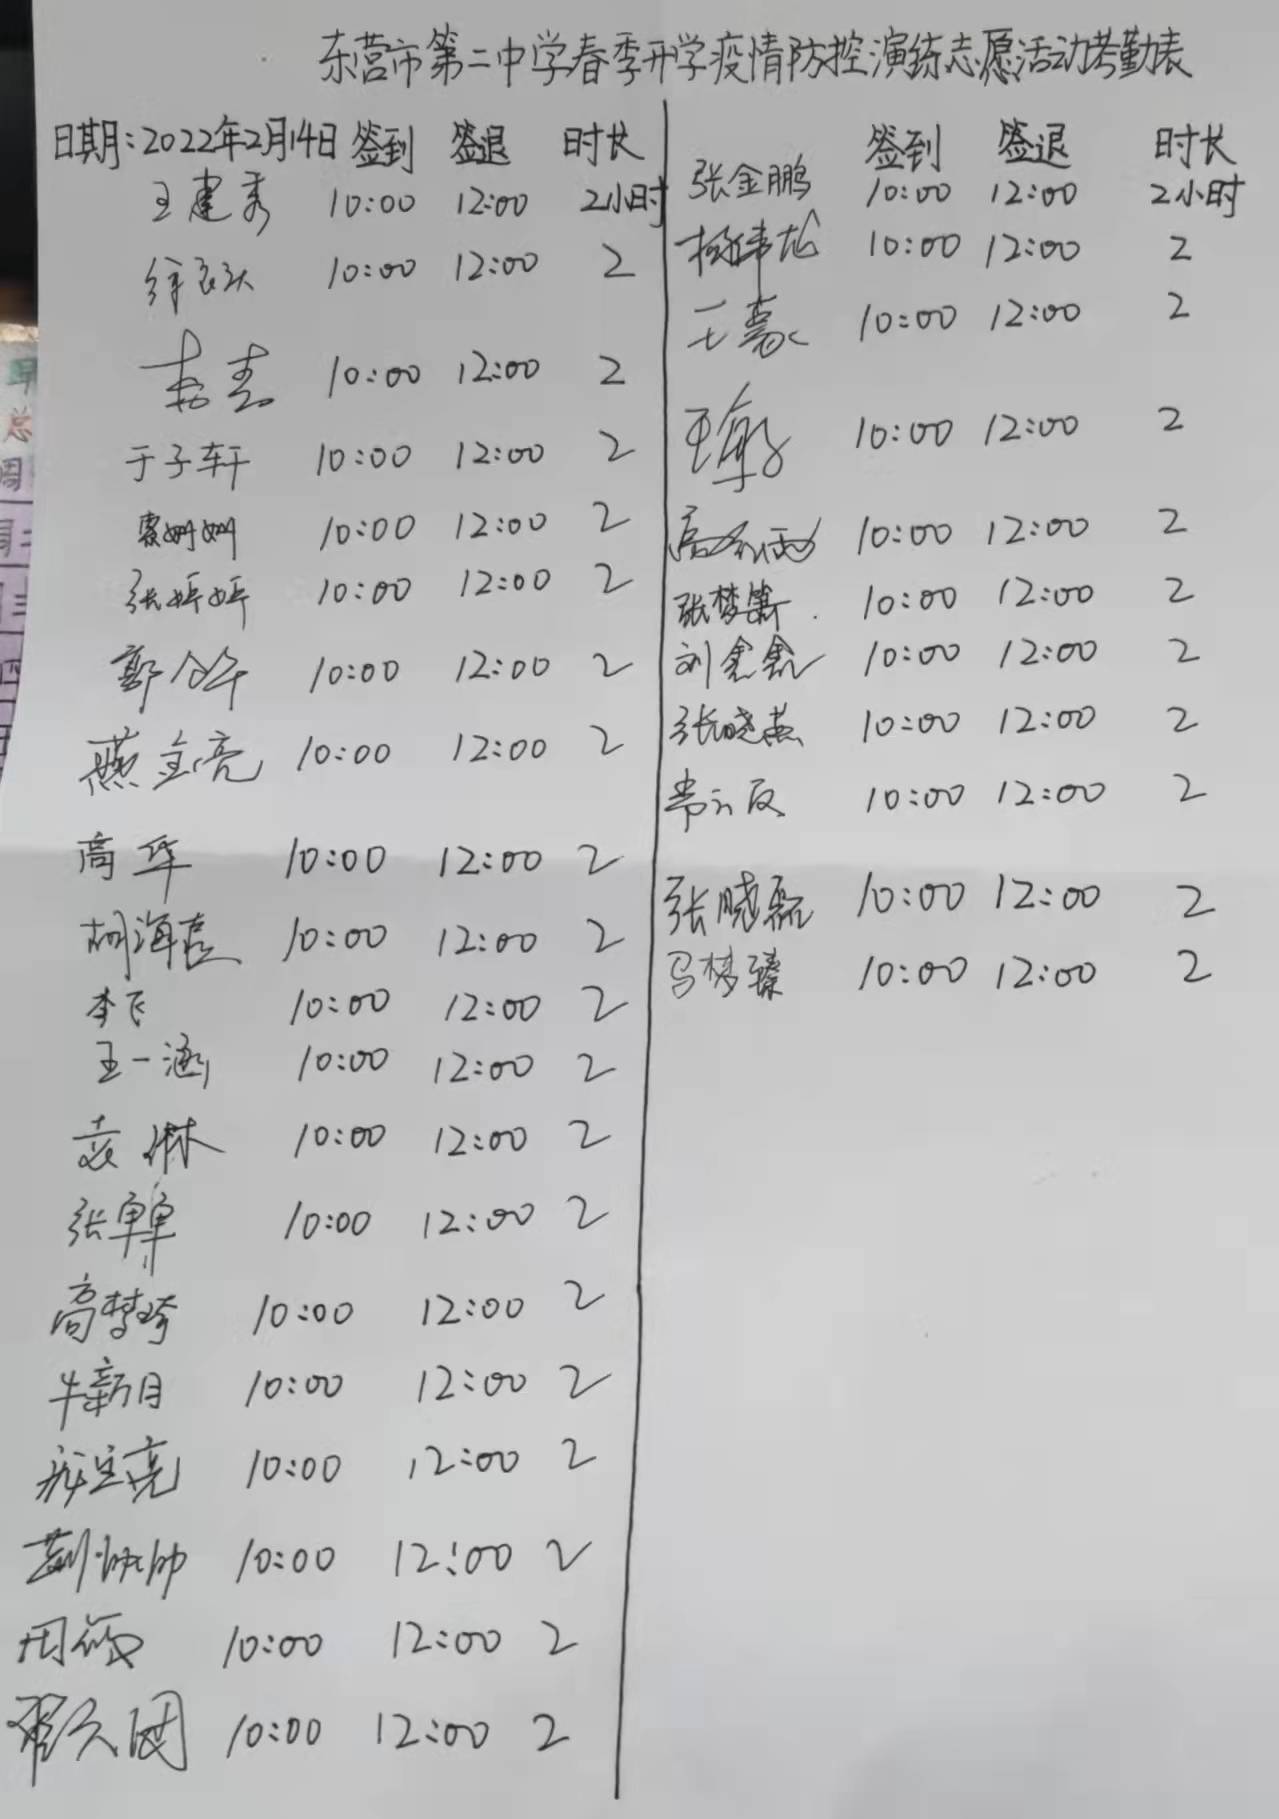 东营市第二中学春季开学疫情防控演练志愿活动考勤表
日期:2022年2月14日 签到 签退 时长
王建秀 10:00 12:00 2小时
10:00 12:00 2
10:00 12:00 2
于子轩 10:00 12:00 2
10:00 12:00 2
张婷婷 10:00 12:00 2
郭 10:00 12:00 2
燕金亮 10:00 12:00 2
高华 10:00 12:00 2
胡海 10:00 12:00 2
李飞 10:00 12:00 2
王一涵 10:00 12:00 2
袁琳 10:00 12:00 2
张 10:00 12:00 2
高梦琦 10:00 12:00 2
牛新月 10:00 12:00 2
亮 10:00 12:00 2
帅 10:00 12:00 2
周 10:00 12:00 2
10:00 12:00 2
签到 签退 时长
张金鹏 10:00 12:00 2小时
杨 10:00 12:00 2
王 10:00 12:00 2
王 10:00 12:00 2
高 10:00 12:00 2
张梦 10:00 12:00 2
刘 10:00 12:00 2
张晓燕 10:00 12:00 2
10:00 12:00 2
张晓磊 10:00 12:00 2
马梦臻 10:00 12:00 2